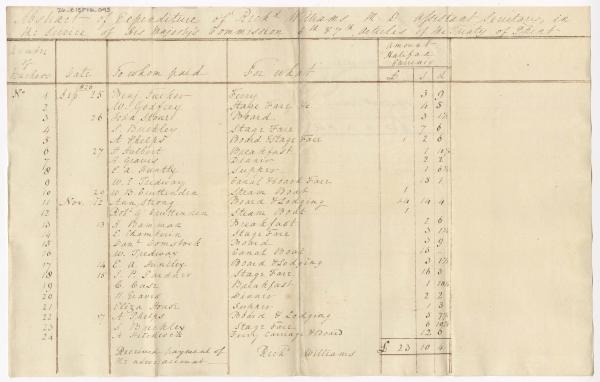 Abstract of Expenditure of Richd Williams M.D. Assistant Secretary, in
the Service of His Majesty's Commission 6th & 7th Articles of the Treaty of Ghent
Number of Voucher Date To whom paid For what Amount Halifax Currency
£ s d
No 1 Sep 25 Benj Tucker Ferry 3 9
2 W. Godfrey Stage Fare &c 4 5
3 26 John Stow Board 3 1½
4 S. Buckley Stage Fare 7 6
5 A Phelps Board & Stage Fare 1 2 6
6 27 Breakfast 1
7 Graves Dinner 2 2
8 E. A. Huntly Supper 1 6½
9 W. Tredway Canal & board Fare 15 1
10 29 W. B. Cruttenden Steam Boat 1
11 Nov. 12 Ann Strong Board & Lodging 14 4
12 Robt G Cruttenden Steam Boat 1
13 13 J. Bammak Breakfast 2 6
14 E Chamberlin Stage Fare 3 1½
15 Danl Comstock Board 3 9
16 W. Tredway Canal Boat 15
17 14 E A Huntley Board & Lodging 3 1½
18 15 J. P. Gardner Stage Fare 16 3
19 C. Case Breakfast 1 10½
20 Graves Dinner 2 2
21 Eliza House Supper 1 3
22 17 A Phelps Board & Lodging 3 7½
23 S Buckley Stage Fare 6 10½
24 A Hitchcock Ferry Carriage & Board 12 6
£ 23 10 4
Received payment of Richd Williams
the above account.